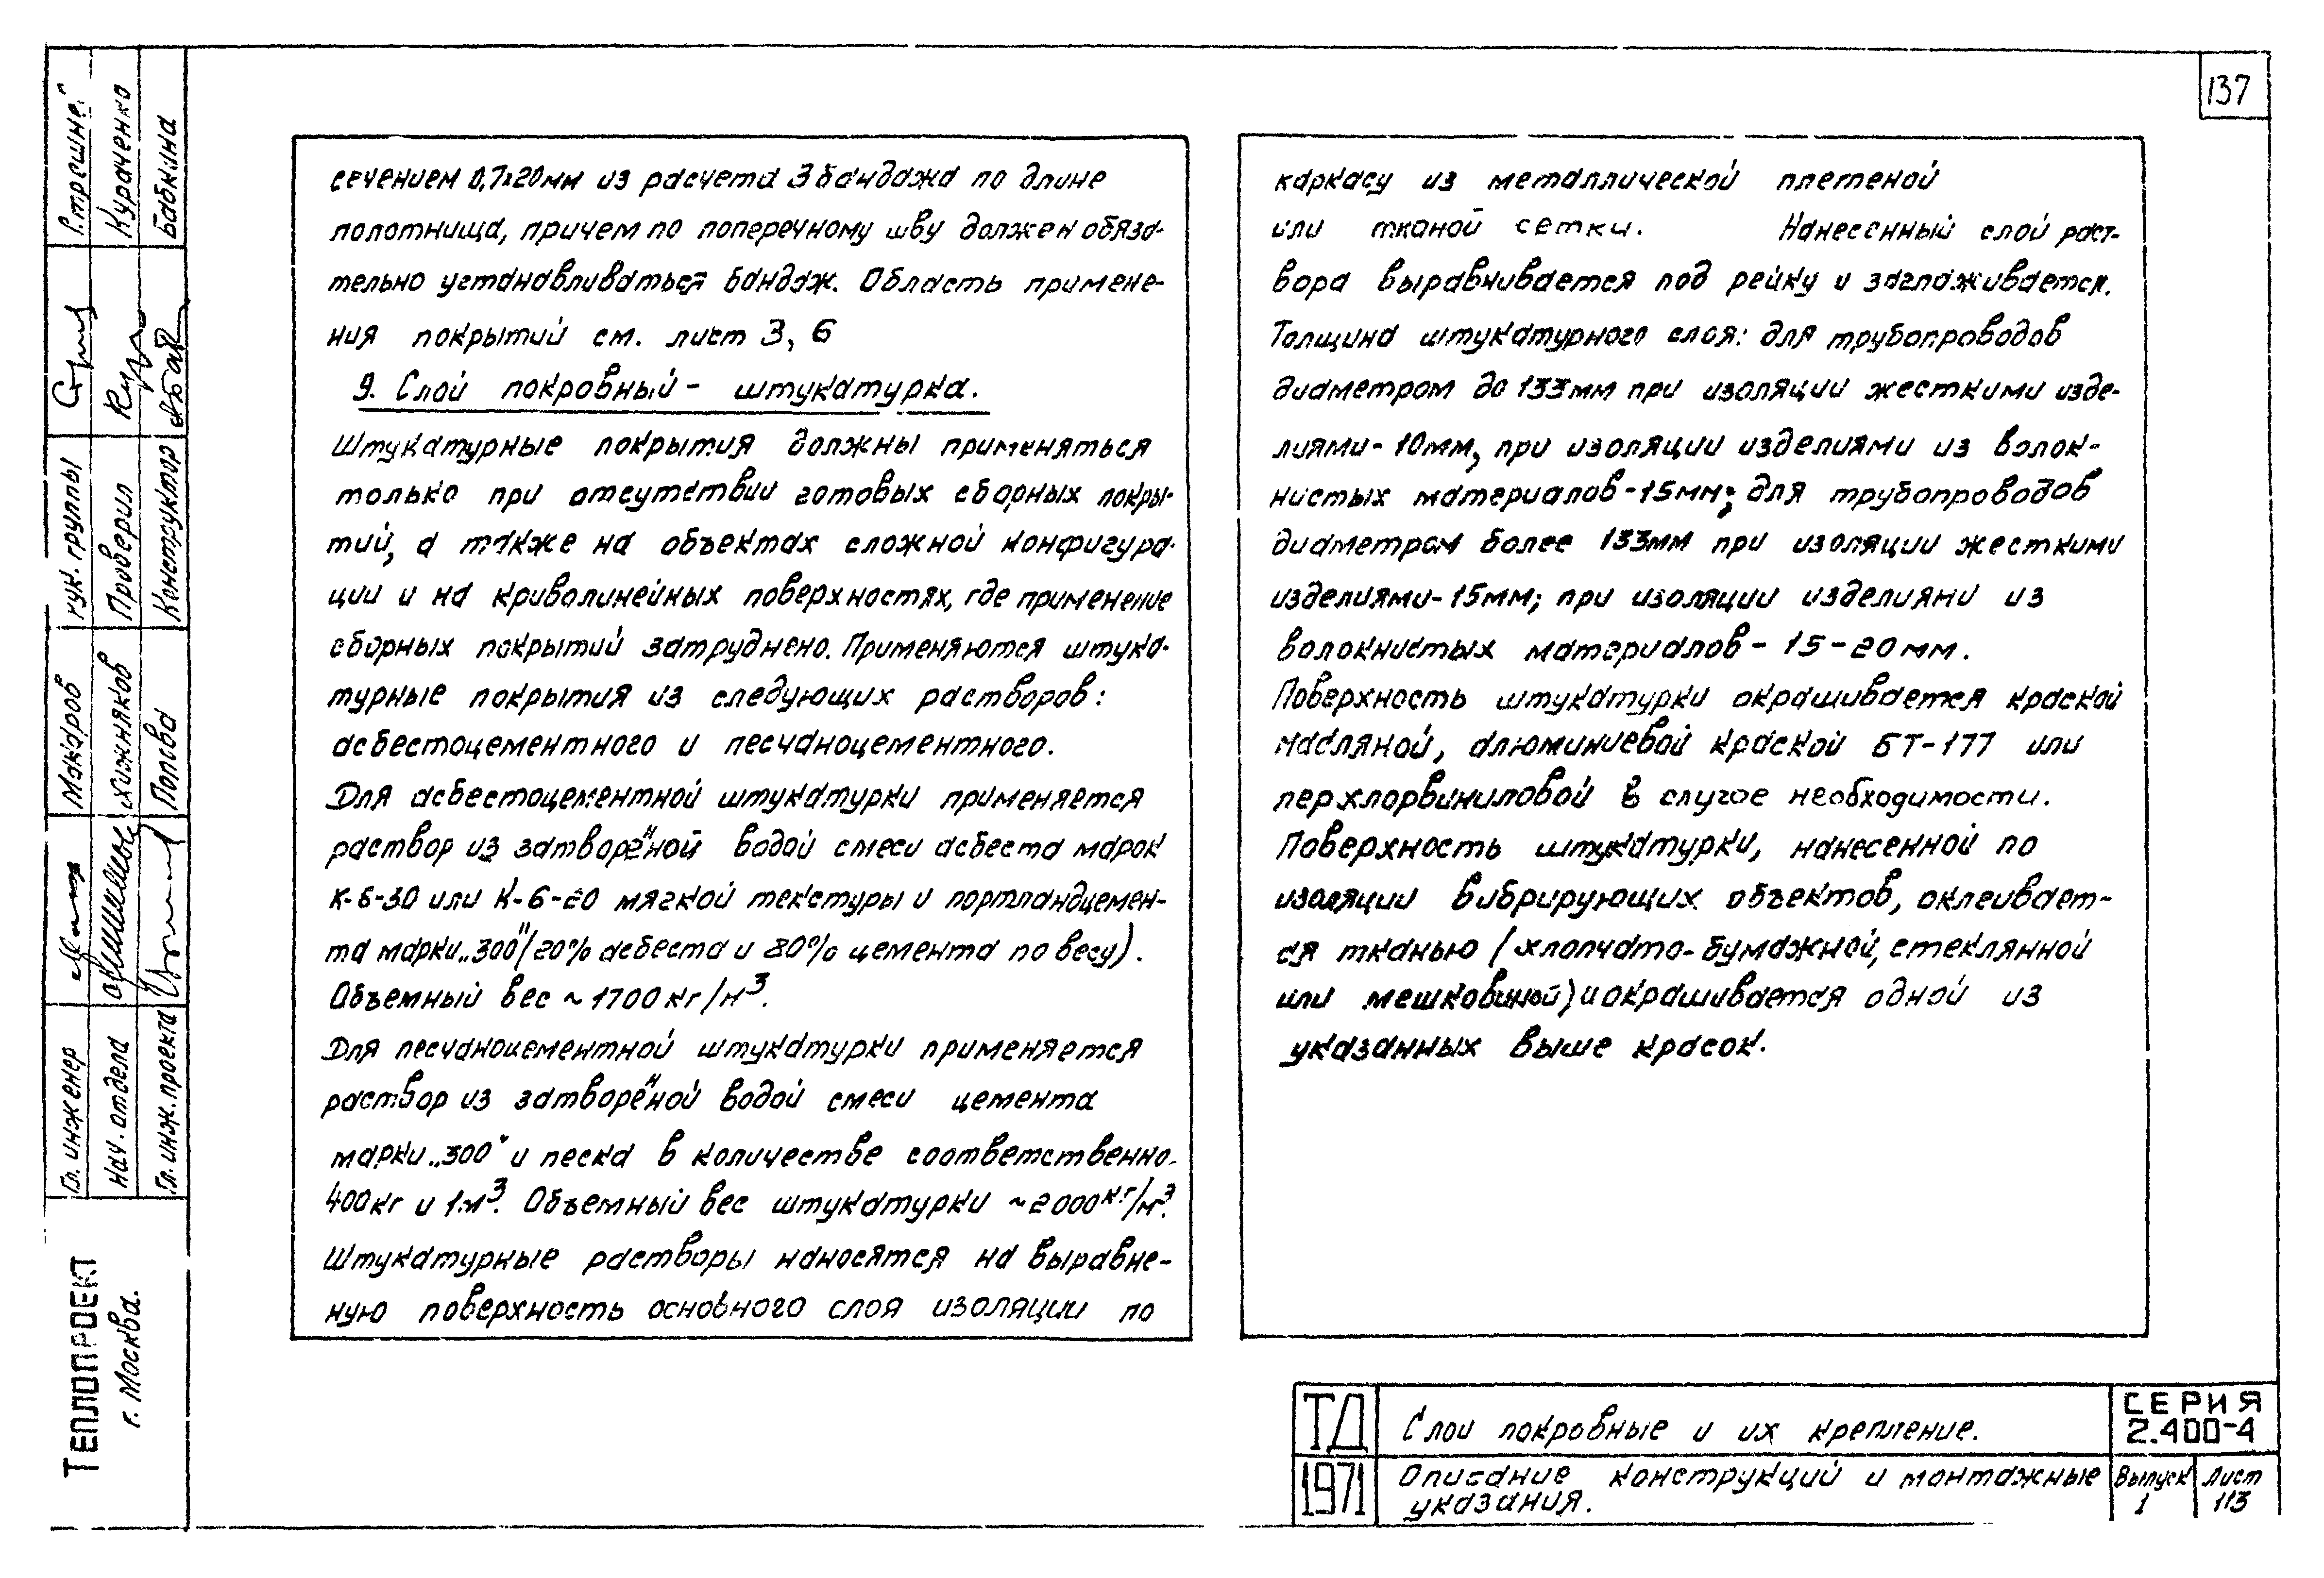 137
сечением 0,7х20мм из расчета 3 бандажа по длине
полотнища, причем по поперечному шву должен обяза-
тельно устанавливаться бандаж. Область примене-
ния покрытий см. лист 3, 6
9. Слой покровный - штукатурка.
Штукатурные покрытия должны применяться
только при отсутствии готовых сборных покры-
тий, а также на объектах сложной конфигура-
ции и на криволинейных поверхностях, где применение
сборных покрытий затруднено. Применяются штука-
турные покрытия из следующих растворов:
асбестоцементного и песчаноцементного.
Для асбестоцементной штукатурки применяется
раствор из затворённой водой смеси асбеста марок
К-6-30 или К-6-20 мягкой текстуры и портландцемен-
та марки „300" (20% асбеста и 80% цемента по весу).
Объемный вес ~ 1700 кг/м³.
Для песчаноцементной штукатурки применяется
раствор из затворённой водой смеси цемента
марки „300" и песка в количестве соответственно
400кг и 1м³. Объемный вес штукатурки ~2000кг/м³.
Штукатурные растворы наносятся на выравне-
ную поверхность основного слоя изоляции по
каркасу из металлической плетеной
или тканой сетки. Нанесенный слой раст-
вора выравнивается под рейку и заглаживается.
Толщина штукатурного слоя: для трубопроводов
диаметром до 133мм при изоляции жесткими изде-
лиями-10мм, при изоляции изделиями из волок-
нистых материалов-15мм; для трубопроводов
диаметром более 133мм при изоляции жесткими
изделиями-15мм; при изоляции изделиями из
волокнистых материалов - 15-20мм.
Поверхность штукатурки окрашивается краской
масляной, алюминиевой краской БТ-177 или
перхлорвиниловой в случае необходимости.
Поверхность штукатурки, нанесенной по
изоляции вибрирующих объектов, оклеивает-
ся тканью (хлопчато-бумажной, стеклянной
или мешковиной) и окрашивается одной из
указанных выше красок.
ТД
1971
Слои покровные и их крепление.
Описание конструкций и монтажные
указания.
СЕРИЯ
2.400-4
Выпуск
1
Лист
113
ТЕПЛОПРОЕКТ
г. Москва.
Гл. инженер
Макаров
рук. группы
Нач. отдела
Хижняков
Проверил
Кураченко
Гл. инж. проекта
Попова
Конструктор
Бабкина